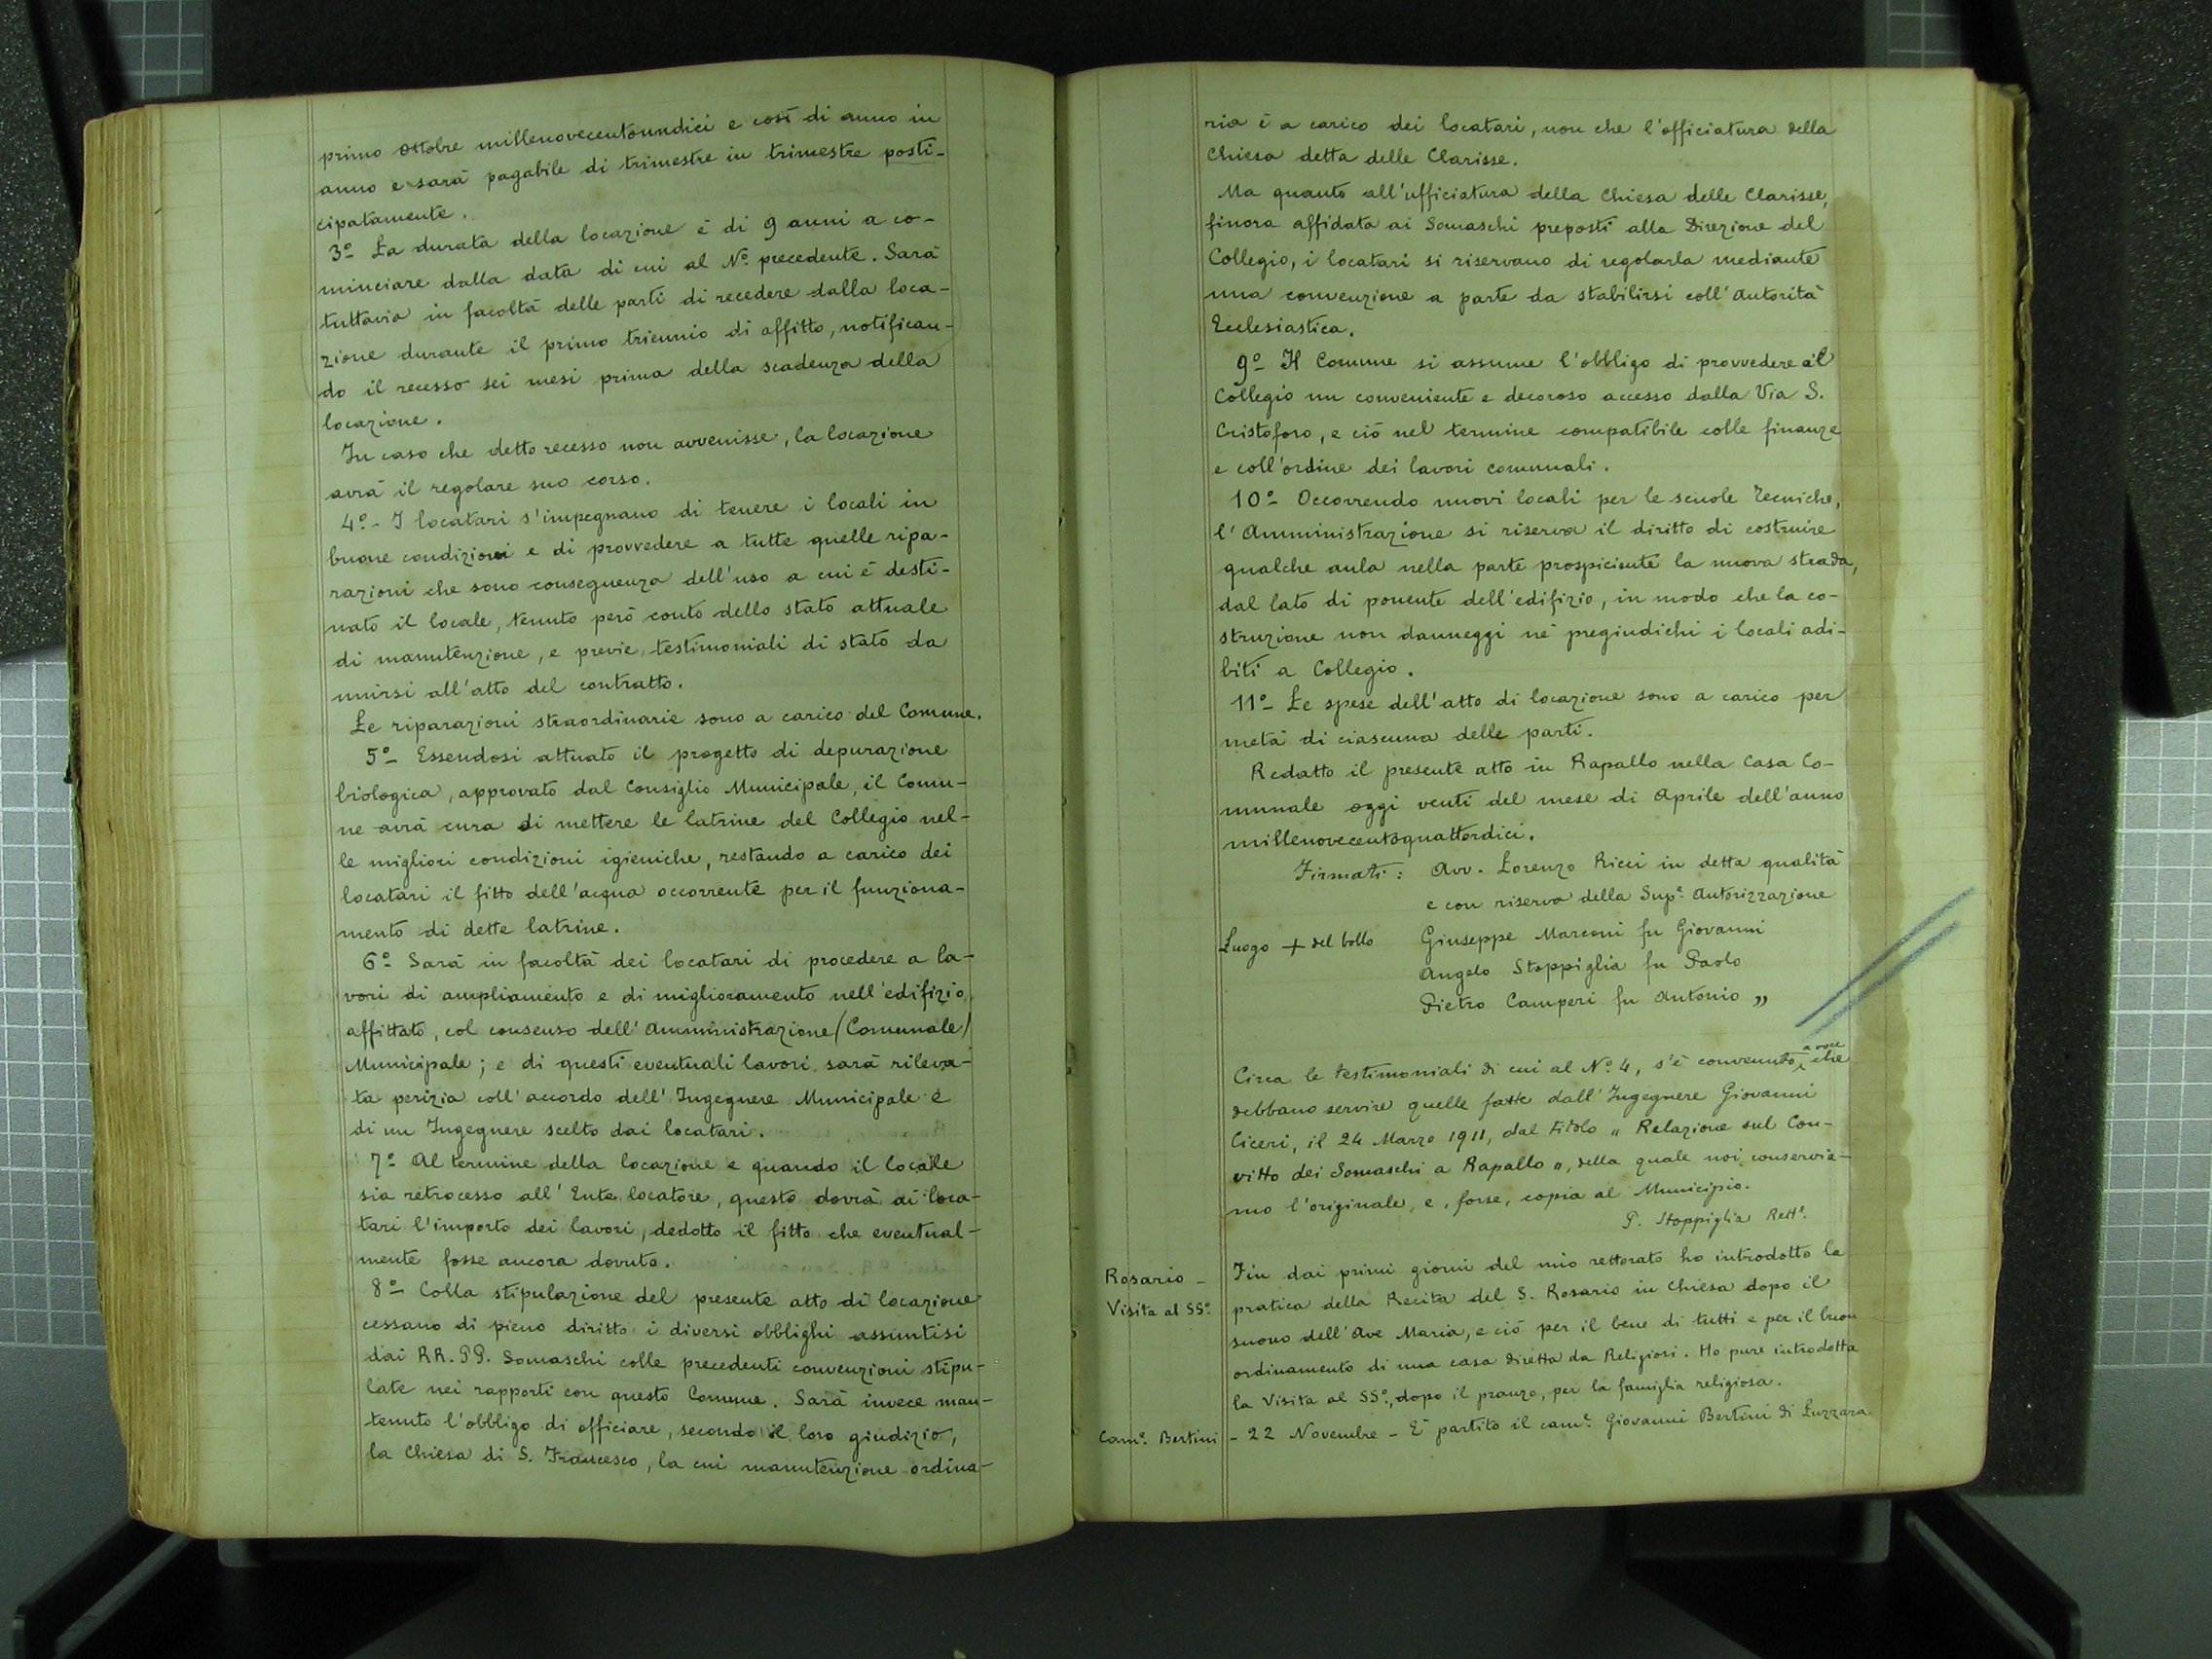 primo ottobre millenovecentoundici e così di anno in
anno e sarà pagabile di trimestre in trimestre posti-
cipatamente.
3º La durata della locazione è di 9 anni a co-
minciare dalla data di cui al Nº precedente. Sarà
tuttavia in facoltà delle parti di recedere dalla loca-
zione durante il primo triennio di affitto, notifican-
do il recesso sei mesi prima della scadenza della
locazione.
In caso che detto recesso non avvenisse, la locazione
avrà il regolare suo corso.
4º - I locatari s'impegnano di tenere i locali in
buone condizioni e di provvedere a tutte quelle ripa-
razioni che sono conseguenza dell'uso a cui è desti-
nato il locale, tenuto però conto dello stato attuale
di manutenzione, e previe testimoniali di stato da
unirsi all'atto del contratto.
Le riparazioni straordinarie sono a carico del Comune.
5º - Essendosi attuato il progetto di depurazione
biologica, approvato dal Consiglio Municipale, il Comu-
ne avrà cura di mettere le latrine del Collegio nel-
le migliori condizioni igieniche, restando a carico dei
locatari il fitto dell'acqua occorrente per il funziona-
mento di dette latrine.
6º - Sarà in facoltà dei locatari di procedere a la-
vori di ampliamento e di miglioramento nell'edifizio
affittato, col consenso dell'Amministrazione (Comunale)
Municipale; e di questi eventuali lavori sarà rileva-
ta perizia coll'accordo dell'Ingegnere Municipale e
di un Ingegnere scelto dai locatari.
7º Al termine della locazione e quando il locale
sia retrocesso all'Ente locatore, questo dovrà ai loca-
tari l'importo dei lavori, dedotto il fitto che eventual-
mente fosse ancora dovuto.
8º - Colla stipulazione del presente atto di locazione
cessano di pieno diritto i diversi obblighi assuntisi
dai RR. PP. Somaschi colle precedenti convenzioni stipu-
late nei rapporti con questo Comune. Sarà invece man-
tenuto l'obbligo di officiare, secondo il loro giudizio,
la Chiesa di S. Francesco, la cui manutenzione ordina-
ria è a carico dei locatari, non che l'officiatura della
Chiesa detta delle Clarisse.
Ma quanto all'ufficiatura della Chiesa delle Clarisse,
finora affidata ai Somaschi preposti alla Direzione del
Collegio, i locatari si riservano di regolarla mediante
una convenzione a parte da stabilirsi coll'Autorità
Ecclesiastica.
9º - Il Comune si assume l'obbligo di provvedere al
Collegio un conveniente e decoroso accesso dalla Via S.
Cristoforo, e ciò nel termine compatibile colle finanze
e coll'ordine dei lavori comunali.
10º - Occorrendo nuovi locali per le scuole Tecniche,
l'Amministrazione si riserva il diritto di costruire
qualche aula nella parte prospiciente la nuova strada,
dal lato di ponente dell'edifizio, in modo che la co-
struzione non danneggi nè pregiudichi i locali adi-
biti a Collegio.
11º - Le spese dell'atto di locazione sono a carico per
metà di ciascuna delle parti.
Redatto il presente atto in Rapallo nella Casa Co-
munale oggi venti del mese di Aprile dell'anno
millenovecentoquattordici.
Firmati: Avv. Lorenzo Ricci in detta qualità
e con riserva della Supe. Autorizzazione
Luogo + del bollo Giuseppe Marconi fu Giovanni
Angelo Stoppiglia fu Paolo
Pietro Camperi fu Antonio „
Circa le testimoniali di cui al Nº 4, s'è convenuto, a voce che
debbano servire quelle fatte dall'Ingegnere Giovanni
Ciceri, il 24 Marzo 1911, dal titolo „ Relazione sul Con-
vitto dei Somaschi a Rapallo „, della quale noi conservia-
mo l'originale, e, forse, copia al Municipio.
P. Stoppiglia Rette.
Rosario -
Visita al SSº.
Fin dai primi giorni del mio rettorato ho introdotto la
pratica della Recita del S. Rosario in Chiesa dopo il
suono dell'Ave Maria, e ciò per il bene di tutti e per il buon
ordinamento di una casa diretta da Religiosi. Ho pure introdotta
la Visita al SSº, dopo il pranzo, per la famiglia religiosa.
Came. Bertini - 22 Novembre - È partito il came. Giovanni Bertini di Luzzara